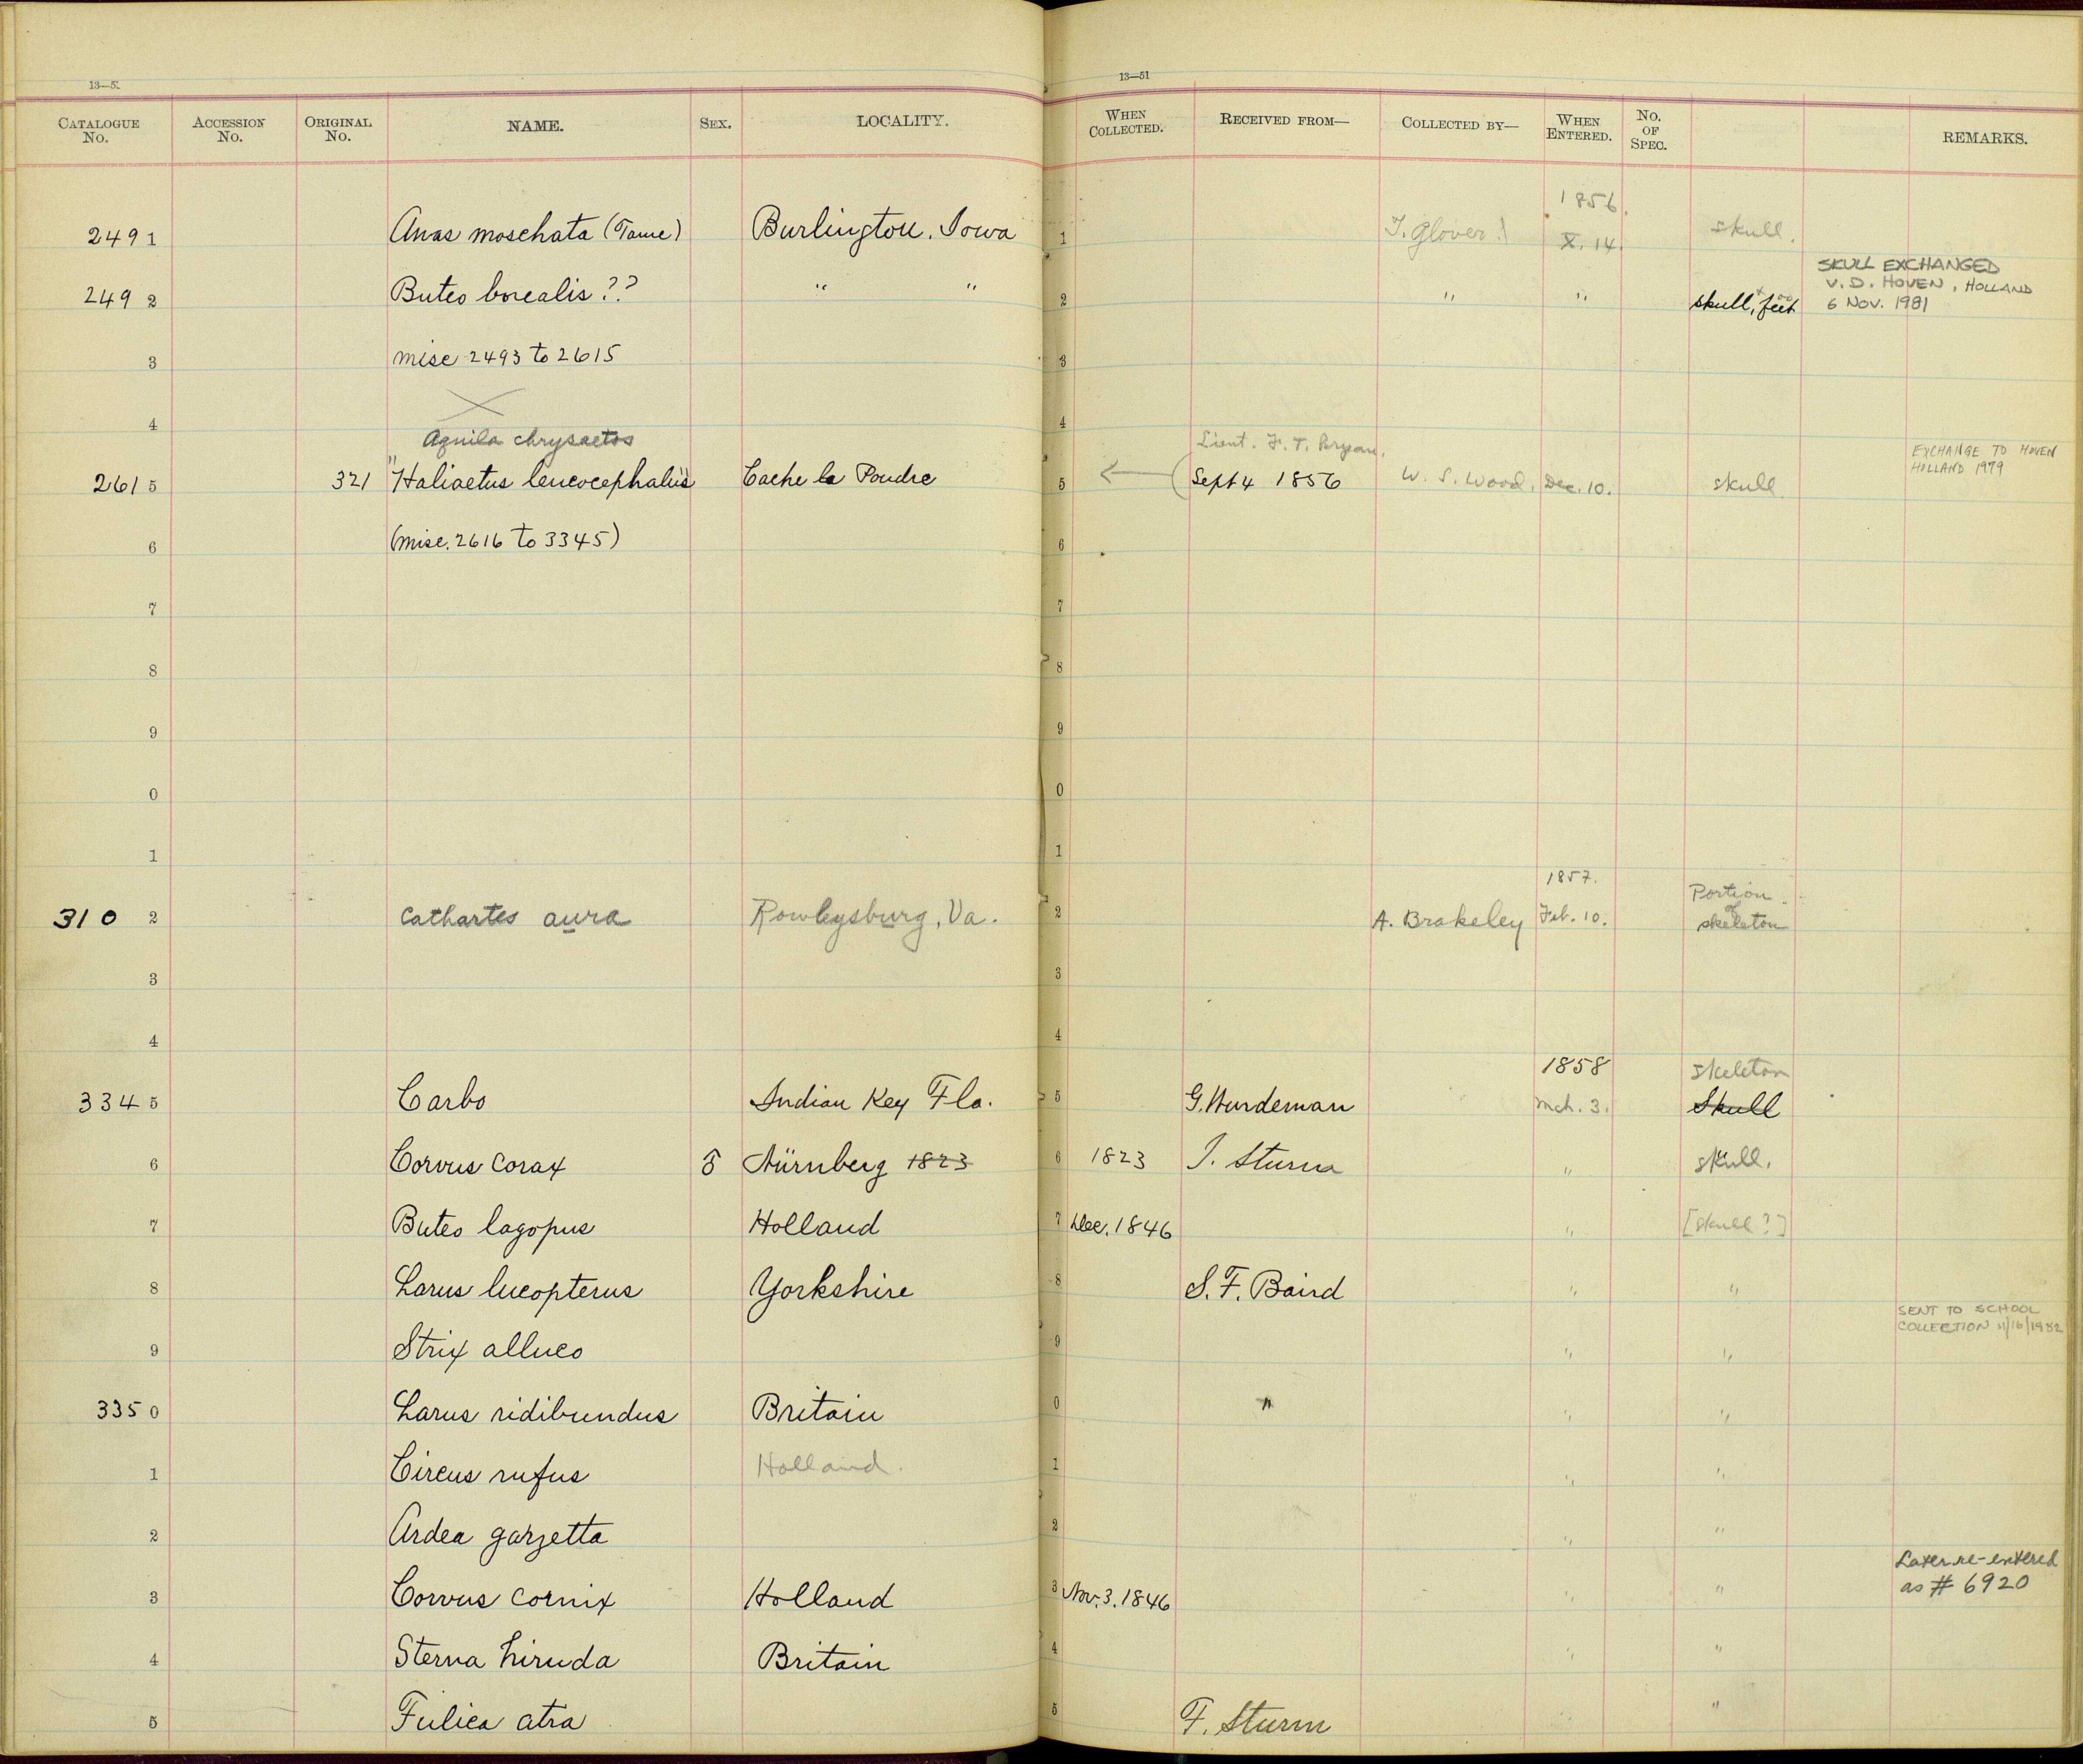 13—5
13—51
CATALOGUE No. ACCESSION No. ORIGINAL No. NAME. SEX. LOCALITY. WHEN COLLECTED. RECEIVED FROM— COLLECTED BY— WHEN ENTERED. No. OF SPEC. REMARKS.
1856.
2491 Anas moschata (Tame) Burlington. Iowa 1 T. Glover. X. 14. skull.
SKULL EXCHANGED
V. D. HOVEN, HOLLAND
6 NOV. 1981
2492 Buteo borealis?? " " 2 " " skull, feet
3 misc 2493 to 2615 3
4 4
Aquila chrysaetos Lieut. F. T. Bryan.
EXCHANGE TO HOVEN
HOLLAND 1979
2615 321 "Haliaetus leucocephalus" Cache la Poudre 5 (Sept 4 1856 W. S. Wood. Dec. 10. skull
6 (misc. 2616 to 3345) 6
7 7
8 8
9 9
0 0
1 1
1857. Portion of
3102 Cathartes aura Rowlysburg, Va. 2 A. Brakeley Feb. 10. skeleton
3 3
4 4
1858 skeleton
3345 Carbo Indian Key Fla. 5 G. Wurdeman Mch. 3. Skull
6 Corvus corax ♂ Nürnberg 1823 6 1823 J. Sturm " skull.
7 Buteo lagopus Holland 7 Dec. 1846 " [skull?]
8 Larus lucopterus Yorkshire 8 S. F. Baird " "
SENT TO SCHOOL
COLLECTION 11/16/1982
9 Strix alluco 9 " "
3350 Larus ridibundus Britain 0 " " "
1 Circus rufus Holland. 1 " "
2 Ardea garzetta 2 " "
Later re-entered
as # 6920
3 Corvus cornix Holland 3 Nov. 3. 1846 " "
4 Sterna hiruda Britain 4 " "
5 Fulica atra 5 F. Sturm " "